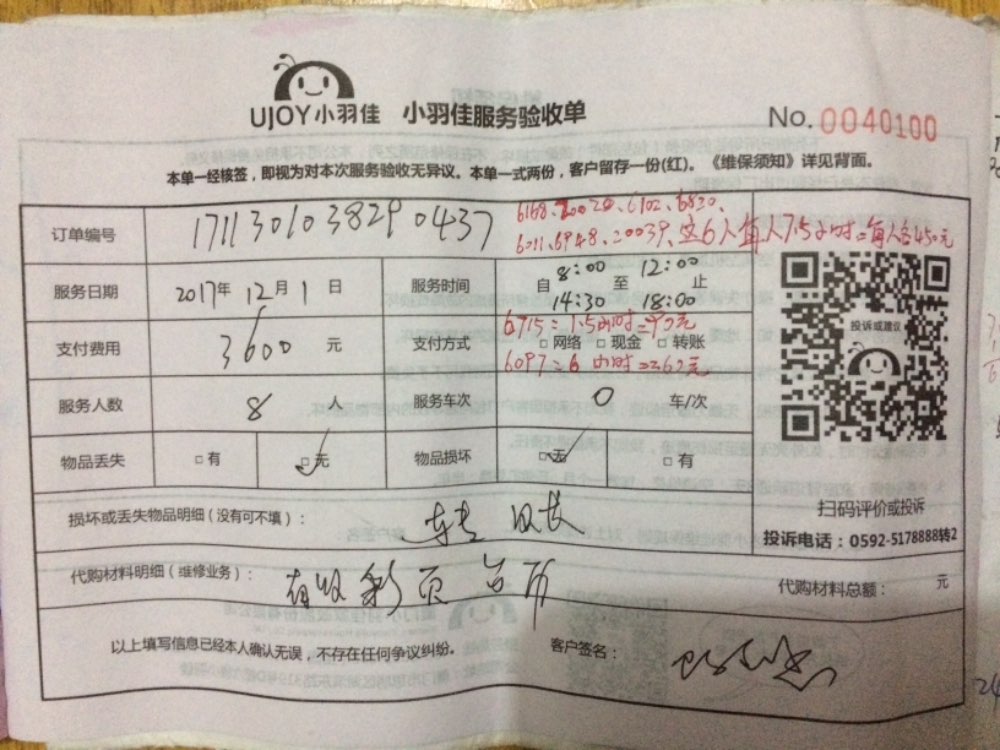 UJOY小羽佳 小羽佳服务验收单
No. 0040100
本单一经核签，即视为对本次服务验收无异议。本单一式两份，客户留存一份(红)。《维保须知》详见背面。
订单编号 171130103829 0437
6168、20028、6102、6830、
6011、6948、20039、这6人每人7.5小时=每人各450元
服务日期 2017年 12月 1 日 服务时间 自 8:00 至 12:00 止
14:30 18:00
支付费用 3600 元 支付方式 □网络 □现金 □转账
6715=1.5小时=90元
6097=6小时=362元
服务人数 8 人 服务车次 0 车/次
物品丢失 □有 □无 物品损坏 □无 □有
损坏或丢失物品明细（没有可不填）：
代购材料明细（维修业务）：
代购材料总额： 元
以上填写信息已经本人确认无误，不存在任何争议纠纷。 客户签名：
投诉或建议
扫码评价或投诉
投诉电话：0592-5178888转2